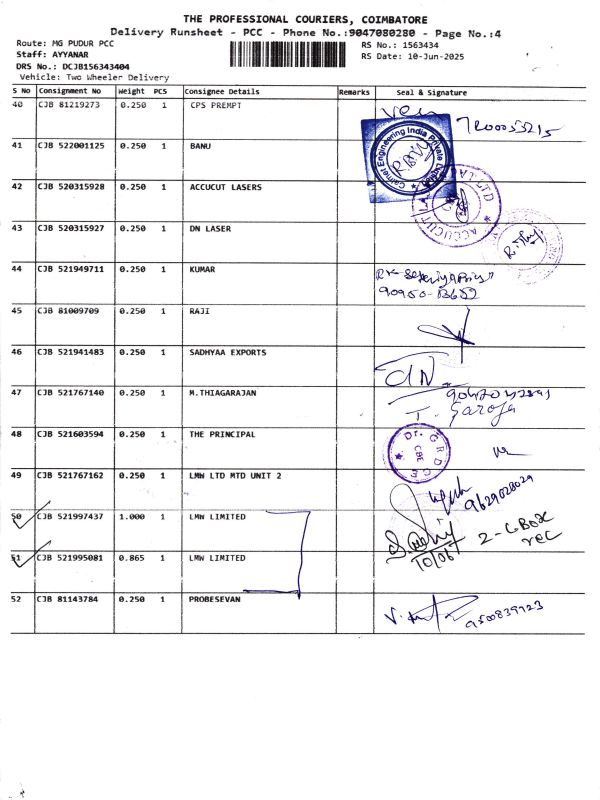 THE PROFESSIONAL COURIERS, COIMBATORE
Delivery Runsheet - PCC - Phone No.:9047080280 - Page No.:4
Route: MG PUDUR PCC
Staff: AYYANAR
DRS No.: DCJB156343404
Vehicle: Two Wheeler Delivery
RS No.: 1563434
RS Date: 10-Jun-2025
S No Consignment No Weight PCS Consignee Details Remarks Seal & Signature
40 CJB 81219273 0.250 1 CPS PREMPT
41 CJB 522001125 0.250 1 BANU
Carrier Engineering India Private Limited
42 CJB 520315928 0.250 1 ACCUCUT LASERS
43 CJB 520315927 0.250 1 DN LASER
44 CJB 521949711 0.250 1 KUMAR
45 CJB 81009709 0.250 1 RAJI
46 CJB 521941483 0.250 1 SADHYAA EXPORTS
47 CJB 521767140 0.250 1 M.THIAGARAJAN
T. Saroja
48 CJB 521603594 0.250 1 THE PRINCIPAL
Dr. GRDCE
CBE
49 CJB 521767162 0.250 1 LMW LTD MTD UNIT 2
9629028029
50 CJB 521997437 1.000 1 LMW LIMITED
2-C-Box
rec
51 CJB 521995081 0.865 1 LMW LIMITED
10/06
52 CJB 81143784 0.250 1 PROBESEVAN
9500839923